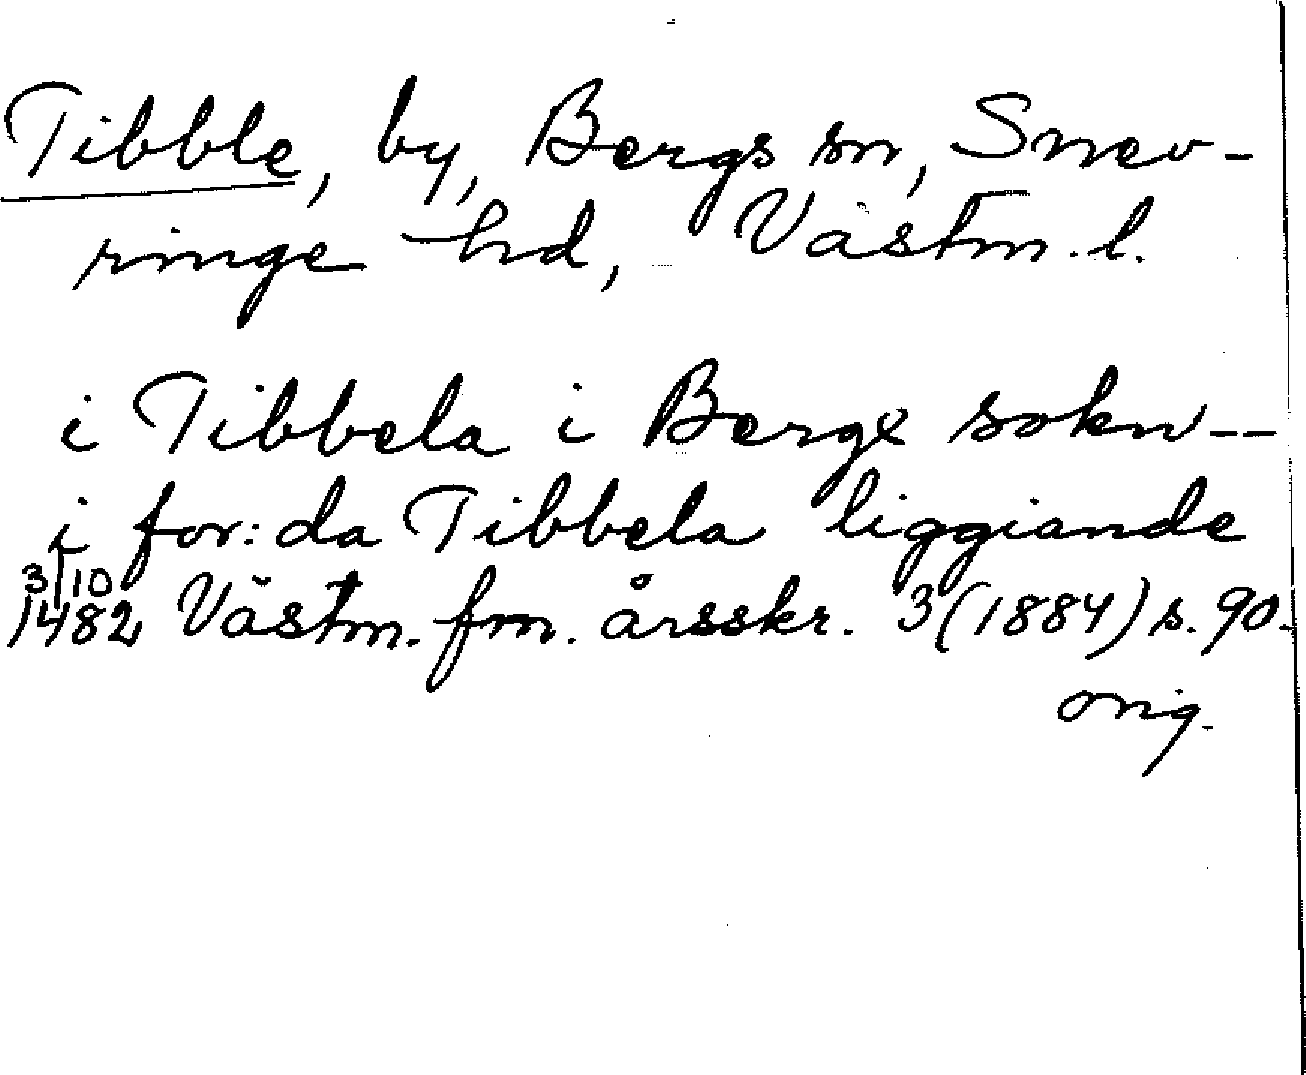 Tibble, by, Bergs sn, Snev-
ringe hd, Västm. l.
i Tibbela i Bergx sokn --
i for: da Tibbela liggiande
3/10
1482 Västm. fm. årsskr. 3 (1884) s. 90.
orig.